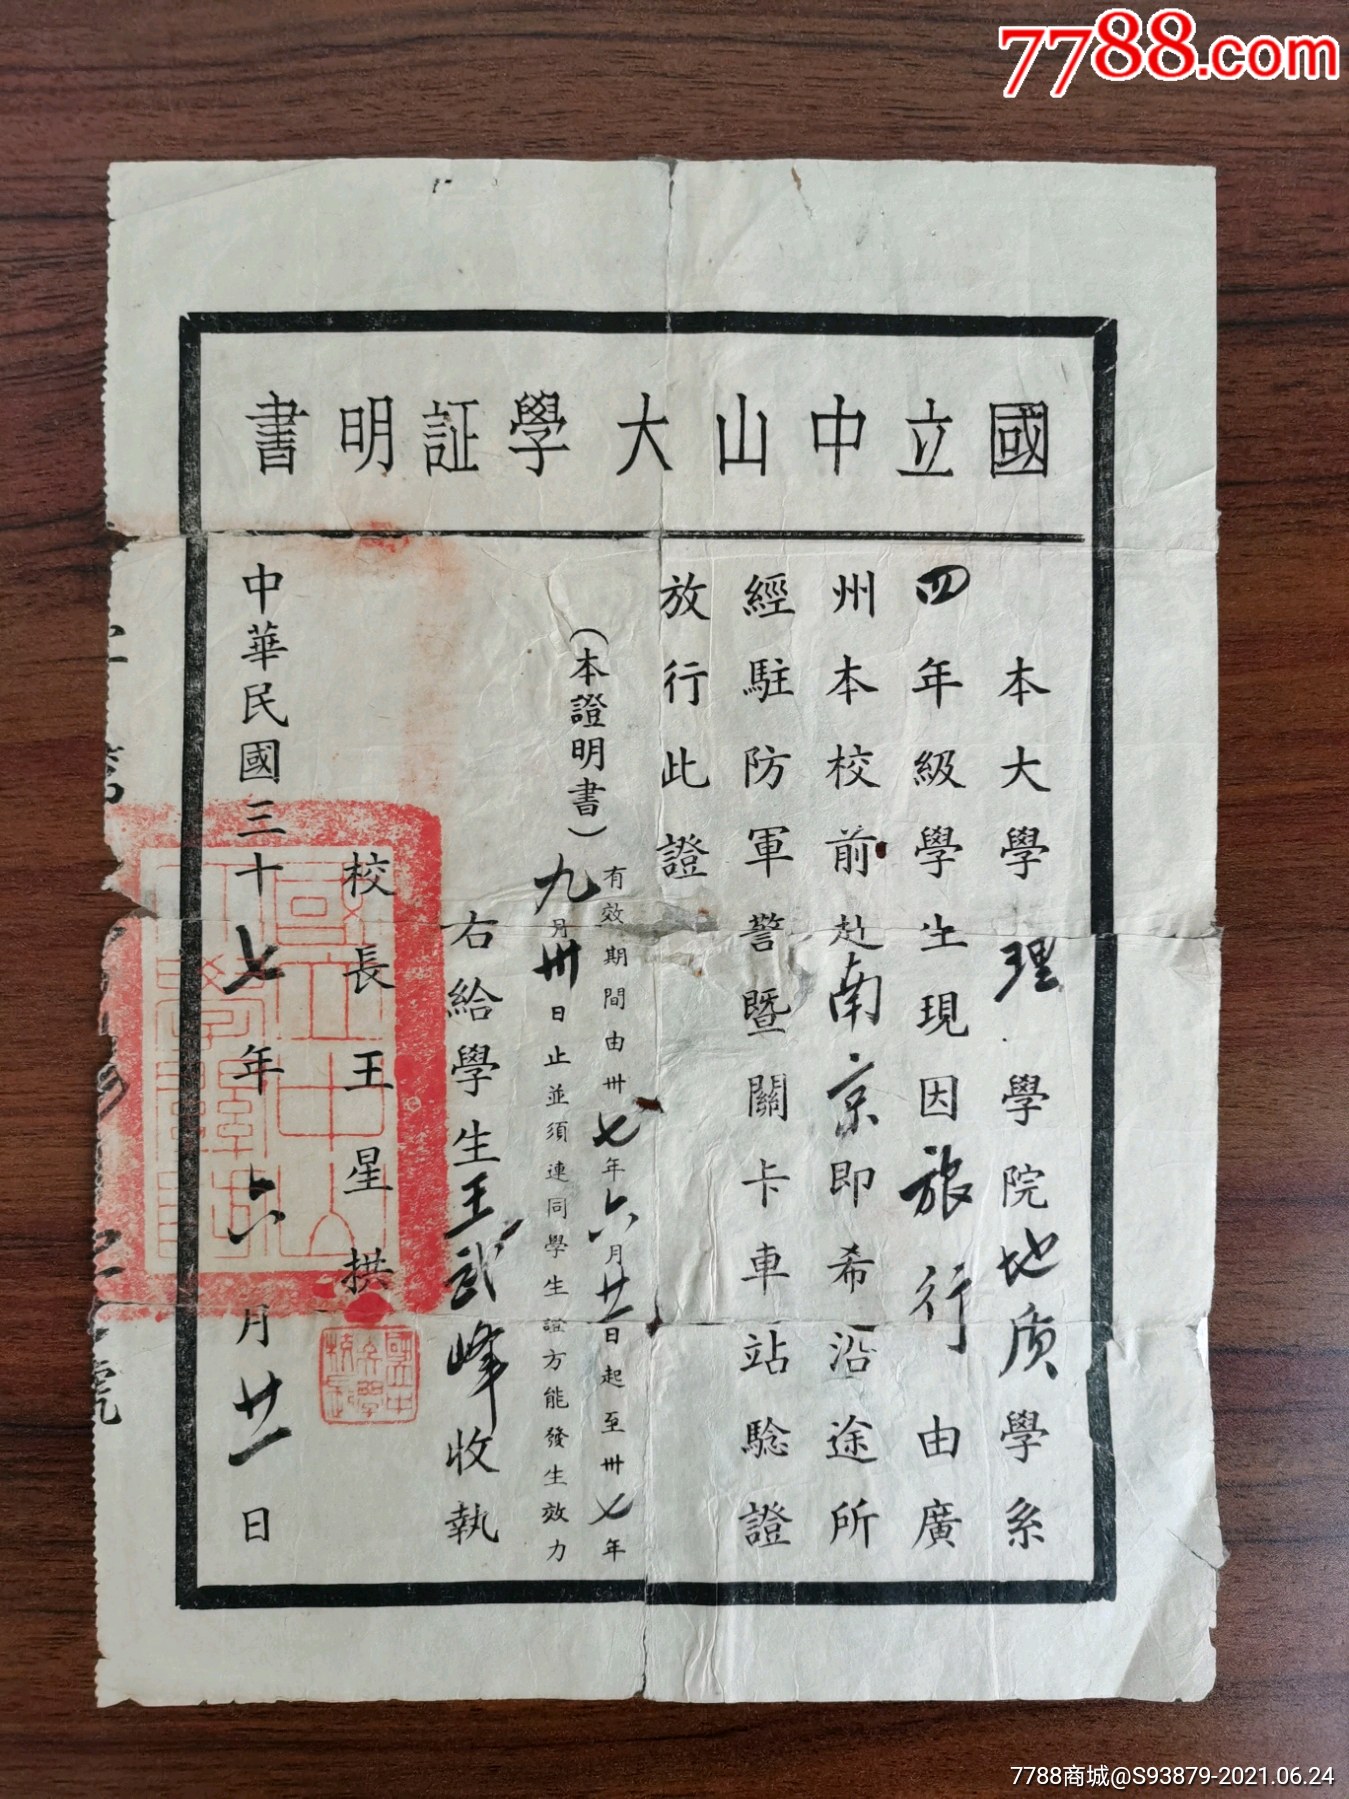 7788.com
國立中山大學証明書
本大學理學院地质學系
四年級學生現因旅行由廣
州本校前赴南京即希沿途所
經駐防軍警暨關卡車站騐證
放行此證
(本證明書)
有效期間由卅七年六月廿一日起至卅七年
九月卅日止並須連同學生證方能發生效力
右給學生王武峰收執
校長王星拱
中華民國三十七年六月廿一日
7788商城@S93879-2021.06.24